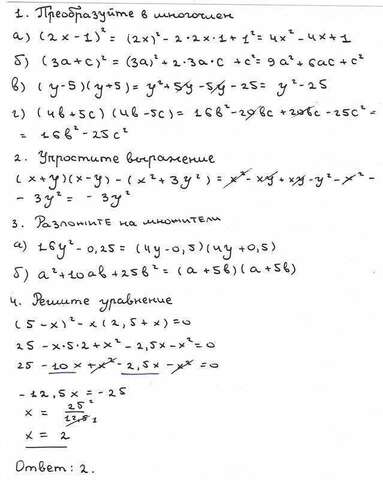 1. Преобразуйте в многочлен
а) (2x-1)² = (2x)² - 2·2x·1 + 1² = 4x² - 4x + 1
б) (3a+c)² = (3a)² + 2·3a·c + c² = 9a² + 6ac + c²
в) (y-5)(y+5) = y² + 5y - 5y - 25 = y² - 25
г) (4b+5c)(4b-5c) = 16b² - 20bc + 20bc - 25c² =
= 16b² - 25c²
2. Упростите выражение
(x+y)(x-y) - (x² + 3y²) = x² - xy + xy - y² - x² -
- 3y² = - 3y²
3. Разложите на множители
а) 16y² - 0,25 = (4y - 0,5)(4y + 0,5)
б) a² + 10ab + 25b² = (a + 5b)(a + 5b)
4. Решите уравнение
(5-x)² - x(2,5+x) = 0
25 - x·5·2 + x² - 2,5x - x² = 0
25 - 10x + x² - 2,5x - x² = 0
-12,5x = -25
x = 25 2 / 12,5 1
x = 2
Ответ: 2.